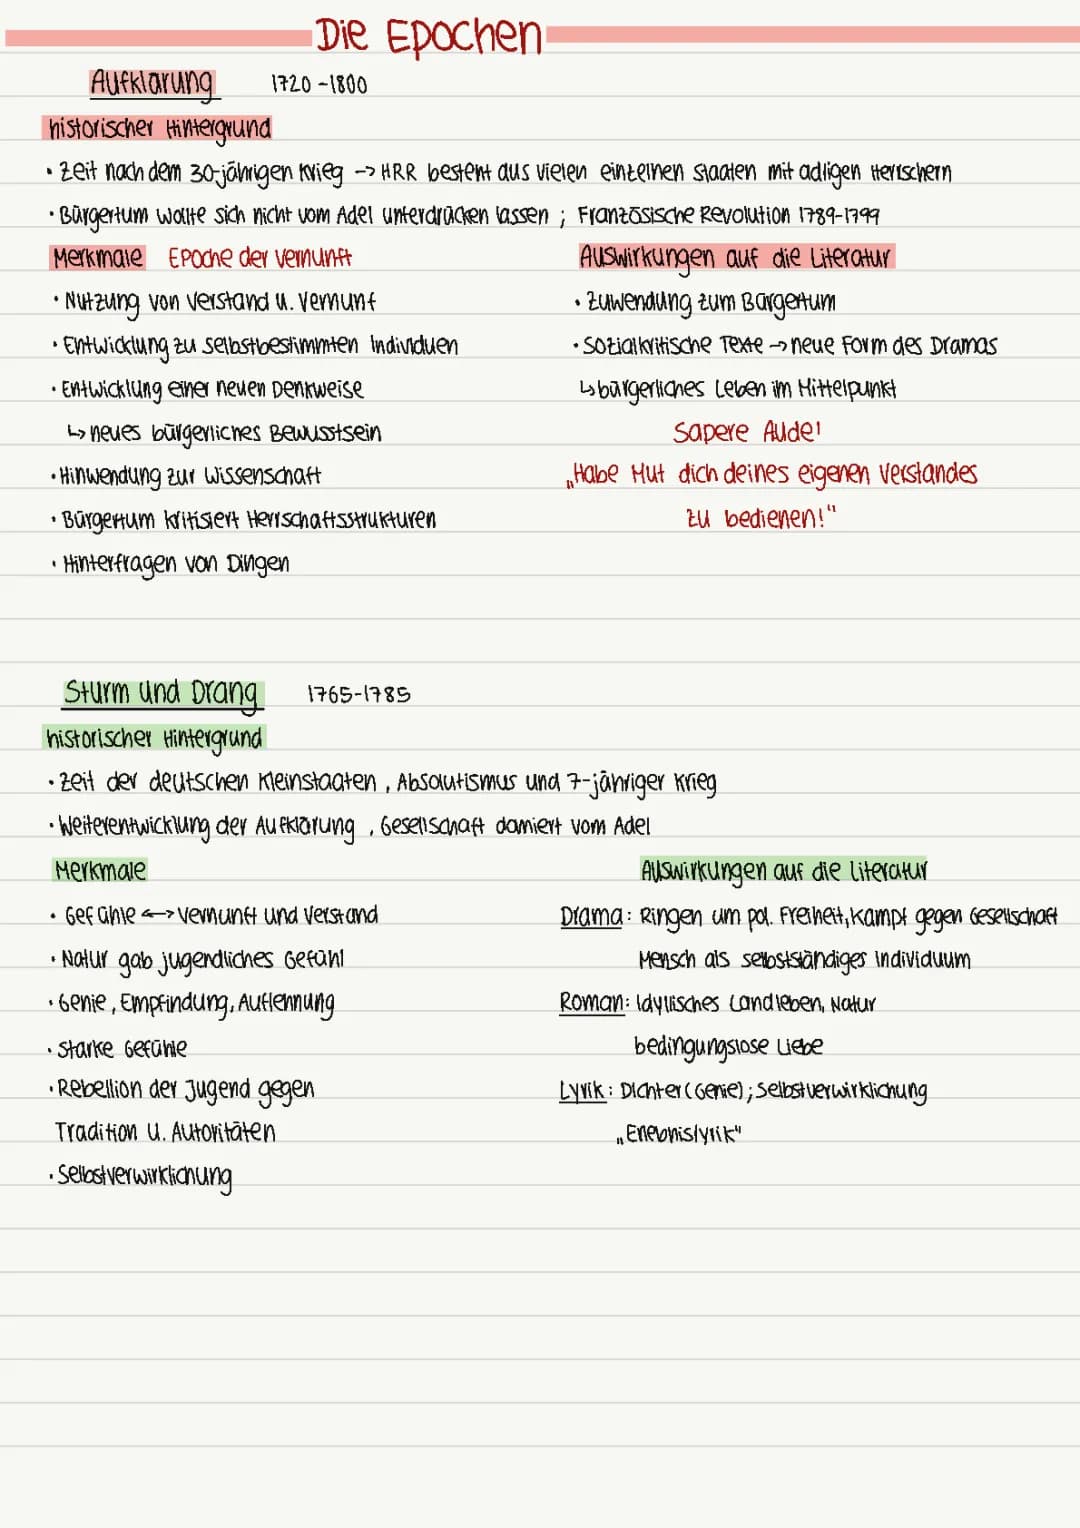 Die Epochen
Aufklärung 1720-1800
historischer Hintergrund
• Zeit nach dem 30-jährigen Krieg -> HRR besteht aus vielen einzelnen Staaten mit adligen Herrschern
• Bürgertum wollte sich nicht vom Adel unterdrücken lassen ; Französische Revolution 1789-1799
Merkmale Epoche der Vernunft
• Nutzung von Verstand u. Vernunf
• Entwicklung zu selbstbestimmten Individuen
• Entwicklung einer neuen Denkweise
↳ neues bürgerliches Bewusstsein
• Hinwendung zur Wissenschaft
• Bürgertum kritisiert Herrschaftsstrukturen
• Hinterfragen von Dingen
Auswirkungen auf die Literatur
• Zuwendung zum Bürgertum
• Sozialkritische Texte → neue Form des Dramas
↳ bürgerliches Leben im Mittelpunkt
Sapere Aude!
„Habe Mut dich deines eigenen Verstandes
zu bedienen!"
Sturm und Drang 1765-1785
historischer Hintergrund
• Zeit der deutschen Kleinstaaten, Absolutismus und 7-jähriger Krieg
• Weiterentwicklung der Aufklärung, Gesellschaft domiert vom Adel
Merkmale
• Gefühle <-> Vernunft und Verstand
• Natur gab jugendliches Gefühl
• Genie, Empfindung, Auflehnung
• starke Gefühle
• Rebellion der Jugend gegen
Tradition u. Autoritäten
• Selbstverwirklichung
Auswirkungen auf die Literatur
Drama: Ringen um pol. Freiheit, Kampf gegen Gesellschaft
Mensch als selbstständiges Individuum
Roman: Idyllisches Landleben, Natur
bedingungslose Liebe
Lyrik: Dichter (Genie); Selbstverwirklichung
„Erlebnislyrik"